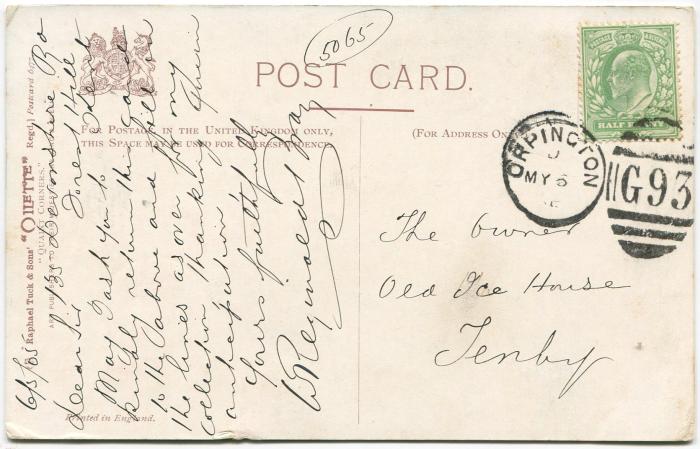 5065
POST CARD.
FOR POSTAGE IN THE UNITED KINGDOM ONLY,
THIS SPACE MAY BE USED FOR CORRESPONDENCE.
(FOR ADDRESS ON
HALF PENNY
ORPINGTON
MY 5
G93
The Owner
Old Ice House
Tenby
Raphael Tuck & Sons' "OILETTE" Regd.) Postcard
"QUAINT CORNERS."
Printed in England.
6/5/05 133 Devonshire Rd
Forest Hill
Dear Sir
May I ask you to
kindly return this card
to the above and fill in
the lines as over for my
collection Thanking
anticipation
Yours faithfully
W Reginald Bray